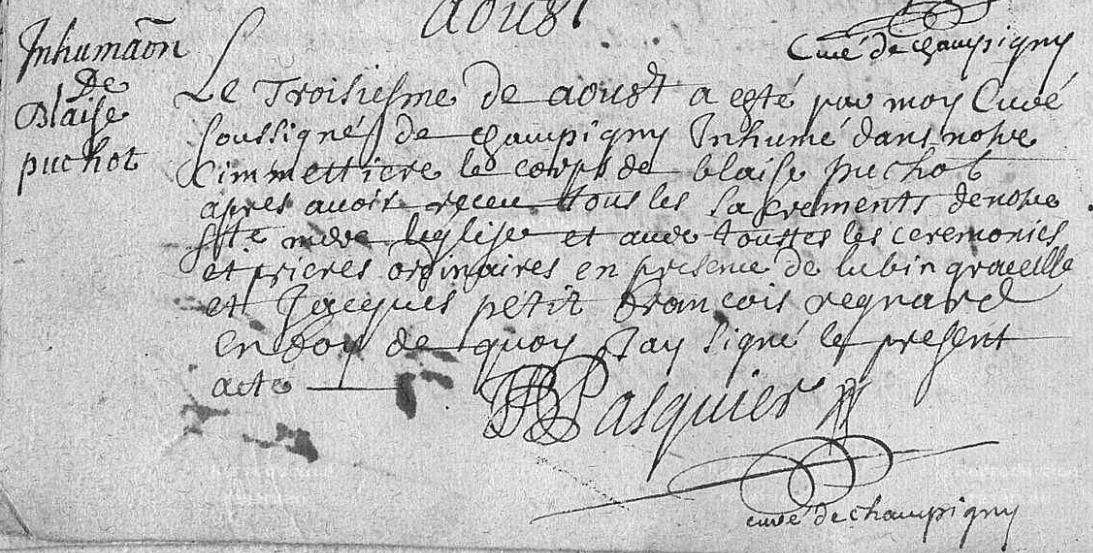 aoust
Curé de champigny
Inhumaõn
De
Blaise
puchot
Le Troisiesme de aoust a esté par moy Curé
soussigné de champigny Inhumé dans notre
Cimmettiere le corps de blaise puchot
apres avoir receu tous les sacrements de notre
ste mere leglise et avec touttes les ceremonies
et prieres ordinaires en presence de lubin graveille
et Jacques petit francois regnard
en foy de quoy Jay signé le present
acte
Pasquier
curé de champigny